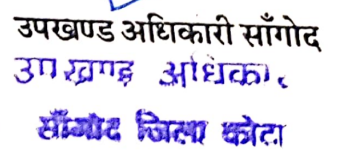 उपखण्ड अधिकारी साँगोद
उपखण्ड अधिका.
साँगोद जिला कोटा